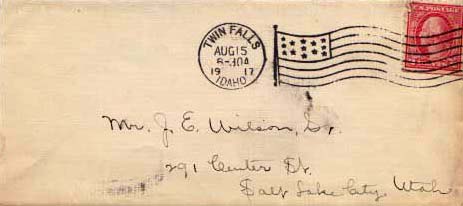 U.S. POSTAGE
TWIN FALLS
AUG 15
6-30A
19 17
IDAHO
Mr. J. E. Wilson, Sr.
291 Center St.
Salt Lake City Utah